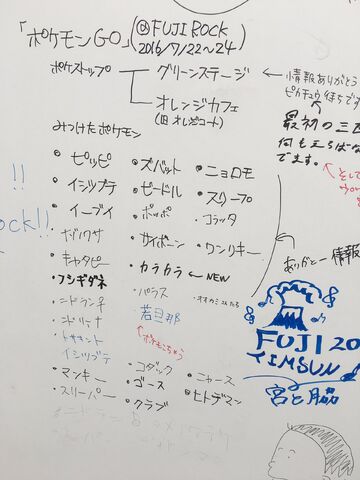 「ポケモンGO」(@FUJI ROCK
2016/7/22〜24)
ポケストップ グリーンステージ ← 情報ありがとう
ピカチュウ待ちです
オレンジカフェ
(旧オレンジコート)
最初の三匹
みつけたポケモン
!!
ock!!
ピッピ
イシツブテ
イーブイ
キャタピー
フシギダネ
ニドラン♀
ニドリーナ
イシツブテ
マンキー
スリーパー
ズバット
ビードル
ポッポ
サイホーン
カラカラ ← NEW
パラス
若旦那
コダック
ゴース
クラブ
ニョロモ
スリープ
コラッタ
ワンリキー
ニャース
ヒトデマン
ありがとー 情報
FUJI 20
宮と脇